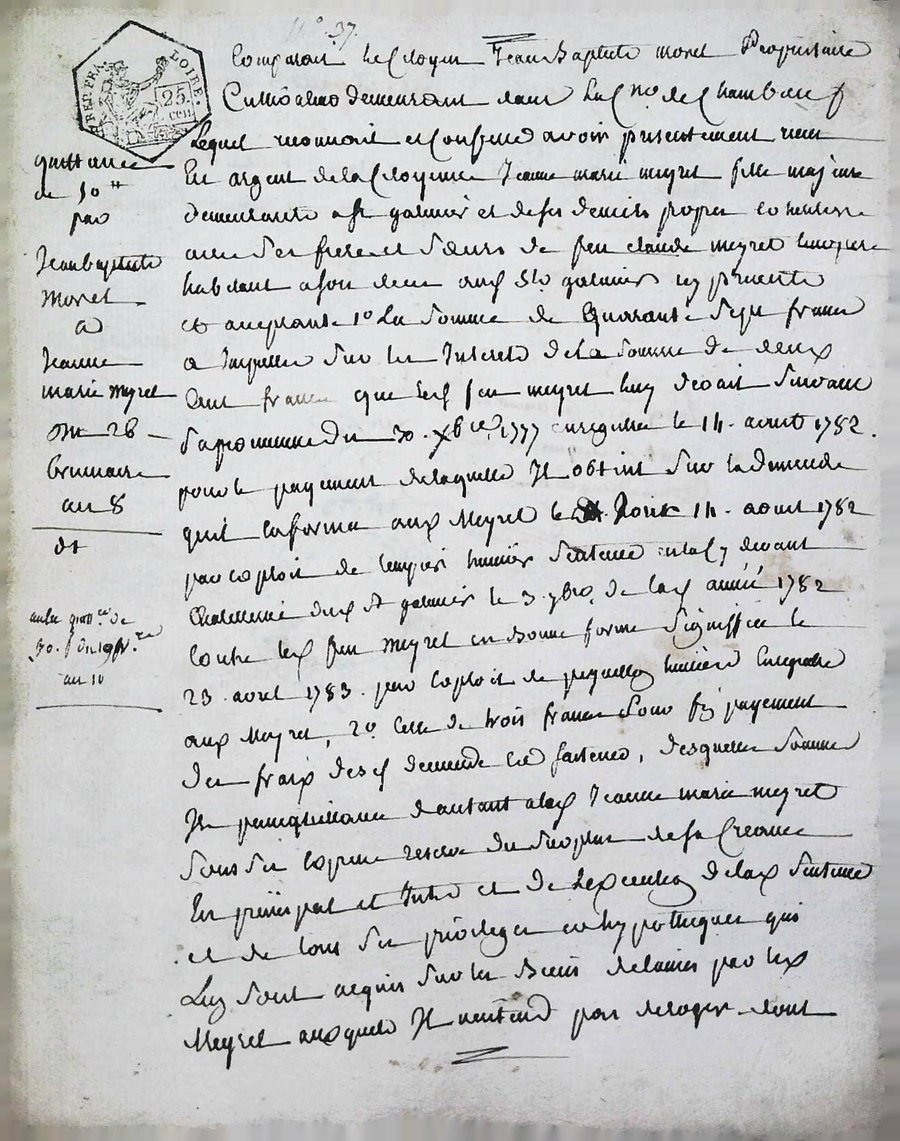 N° 37.
REP. FRA. LOIRE.
25. cen
Comparait le Citoyen Jean Baptiste moret Propriétaire
Cultivateur demeurant dans la Cne. de Chambeuf
Lequel reconnait et Confesse avoir présentement recu
En argent de la Citoyenne Jeanne marie meyret fille majeure
demeurante a st galmier et de ses deniers propres
avec ses frere et sœurs de feu claude meyret
habitant a son deces aud St. galmier icy presente
et acceptante 1o. La Somme de Quarante Sept francs
a Imputer Sur les Interets de la Somme de deux
Cent francs que led feu meyret luy devait Suivant
Sa promesse du 30. xbre. 1777 enregistrée le 14. aoust 1782.
pour le payement de laquelle Il obtint Sur la demande
quil en forma aux Meyret le 14. aoust 1782
par exploit de huissier Sentence en la cy devant
Chatellenie dud St galmier le 3. 7bre. de lad année 1782
Contre led feu Meyret en bonne forme Signiffiée le
23. avril 1783. par Exploit de huissier
aux Meyret, 2o. Celle de trois francs pour payement
des fraix desd demande et Sentence, desquelles Sommes
Il passe quittance dautant a lad Jeanne marie meyret
Sous Sa expresse reserve du Surplus de sa Creance
En principal et Interets et de Lexecution de lad Sentence
et de tous Ses privileges et hypotheques qui
Luy Sont acquis Sur les Biens delaissés par led
Meyret auxquels Il nentend pas deroger dont
quittance
de 50tt
par
Jean baptiste
Moret
a
Jeanne
marie meyret
Du 28
brumaire
an 8
dt
autre de
30. f du 19
an 10